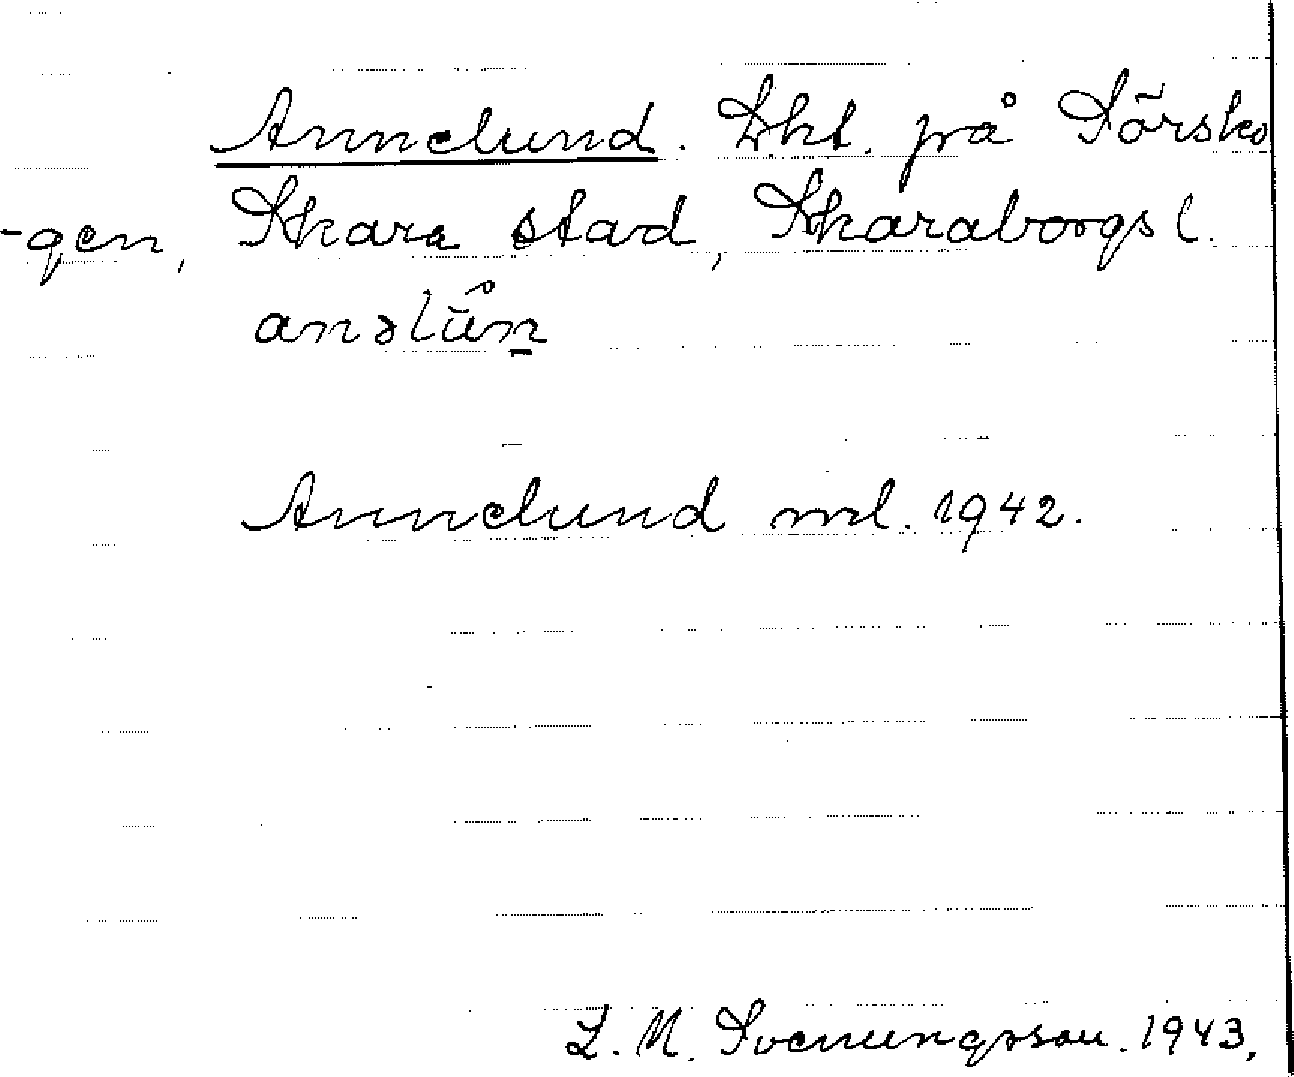 Annelund. Lht. på Sörsko
-gen, Skara stad, Skaraborgs l.
anəlūn̲
Annelund ml. 1942.
L. M. Svenungsson. 1943.